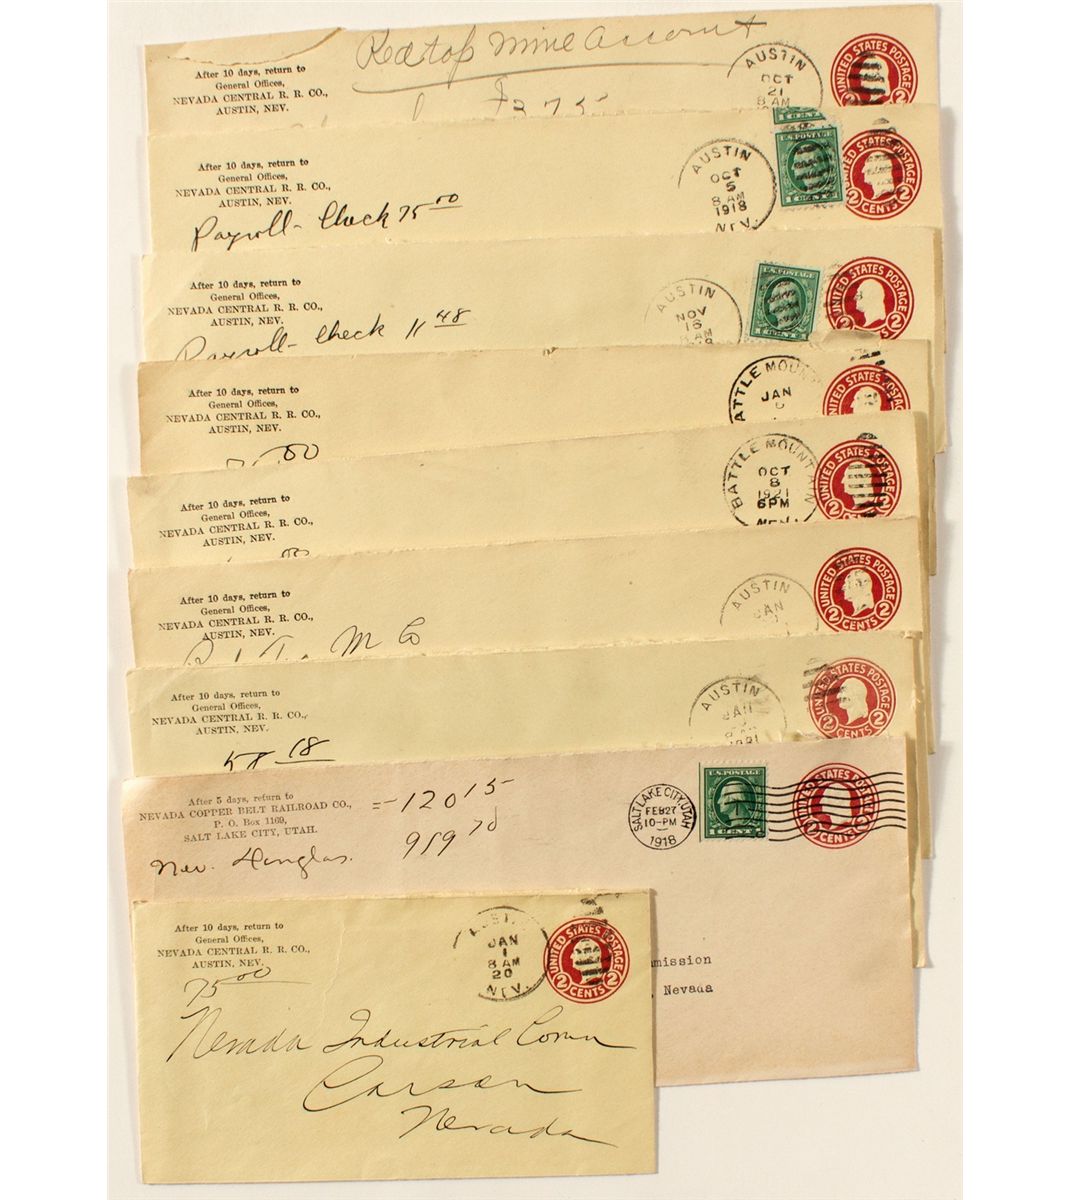 After 10 days, return to
General Offices,
NEVADA CENTRAL R. R. CO.,
AUSTIN, NEV.
Redtop Mine Account
AUSTIN
OCT
21
8 AM
UNITED STATES POSTAGE
2 2
After 10 days, return to
General Offices,
NEVADA CENTRAL R. R. CO.,
AUSTIN, NEV.
Payroll - Check 75 00
AUSTIN
OCT
5
8 AM
1918
NEV.
U.S. POSTAGE
1 CENT 1
UNITED STATES POSTAGE
2 CENTS 2
After 10 days, return to
General Offices,
NEVADA CENTRAL R. R. CO.,
AUSTIN, NEV.
Payroll - Check 11 48
AUSTIN
NOV
16
8 AM
U.S. POSTAGE
1 CENT 1
UNITED STATES POSTAGE
2 2
After 10 days, return to
General Offices,
NEVADA CENTRAL R. R. CO.,
AUSTIN, NEV.
BATTLE MOUN
JAN
UNITED STATES POSTAGE
2 2
After 10 days, return to
General Offices,
NEVADA CENTRAL R. R. CO.,
AUSTIN, NEV.
BATTLE MOUNTAIN
OCT
8
1921
6 PM
NEV.
UNITED STATES POSTAGE
2 2
After 10 days, return to
General Offices,
NEVADA CENTRAL R. R. CO.,
AUSTIN, NEV.
M Co
AUSTIN
JAN
UNITED STATES POSTAGE
2 CENTS 2
After 10 days, return to
General Offices,
NEVADA CENTRAL R. R. CO.,
AUSTIN, NEV.
58 18
AUSTIN
JAN
UNITED STATES POSTAGE
2 CENTS 2
After 5 days, return to
NEVADA COPPER BELT RAILROAD CO.,
P. O. Box 1169,
SALT LAKE CITY, UTAH.
12015
959 70
Nev. Douglas
SALT LAKE CITY, UTAH
FEB 27
10-PM
1918
U.S. POSTAGE
1 CENT 1
UNITED STATES POSTAGE
CENTS
mmission
, Nevada
After 10 days, return to
General Offices,
NEVADA CENTRAL R. R. CO.,
AUSTIN, NEV.
75 00
JAN
1
8 AM
20
NEV.
UNITED STATES POSTAGE
2 CENTS 2
Nevada Industrial Comn
Carson
Nevada